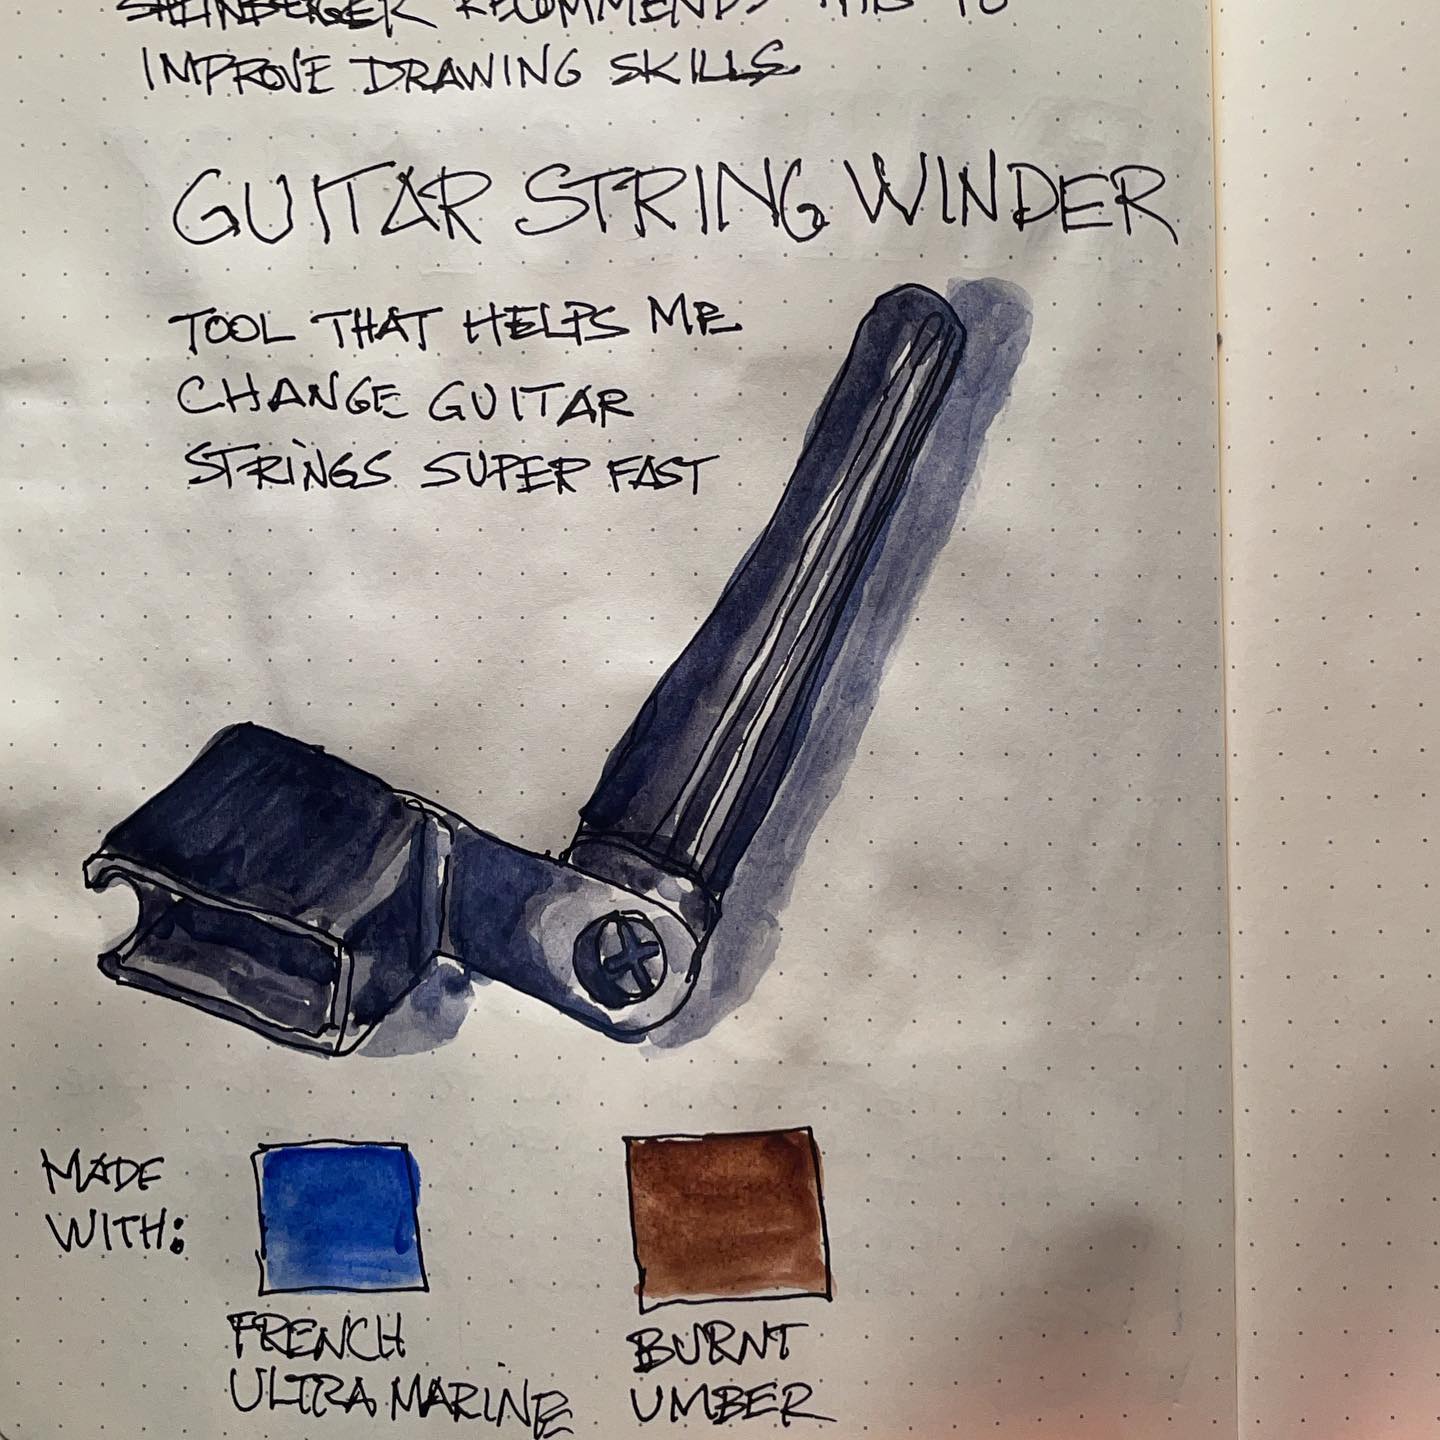 RECOMMENDS THIS TO
IMPROVE DRAWING SKILLS
GUITAR STRING WINDER
TOOL THAT HELPS ME
CHANGE GUITAR
STRINGS SUPER FAST
MADE
WITH:
FRENCH
ULTRA MARINE
BURNT
UMBER